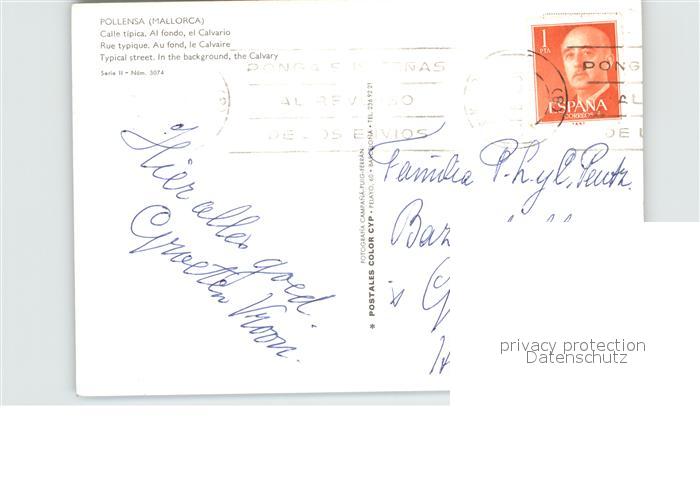 POLLENSA (MALLORCA)
Calle típica. Al fondo, el Calvario
Rue typique. Au fond, le Calvaire
Typical street. In the background, the Calvary
Serie II - Núm. 3074
PONGA SUS SEÑAS
AL REVERSO
DE LOS ENVIOS
1
PTA
ESPAÑA
CORREOS
PONG
AL
DE L
Hier alles goed.
Groeten
FOTOGRAFIA CAMPAÑA-PUIG-FERRAN
* POSTALES COLOR CYP • PELAYO, 60 • BARCELONA • TEL. 236 92 21
Familia
privacy protection
Datenschutz